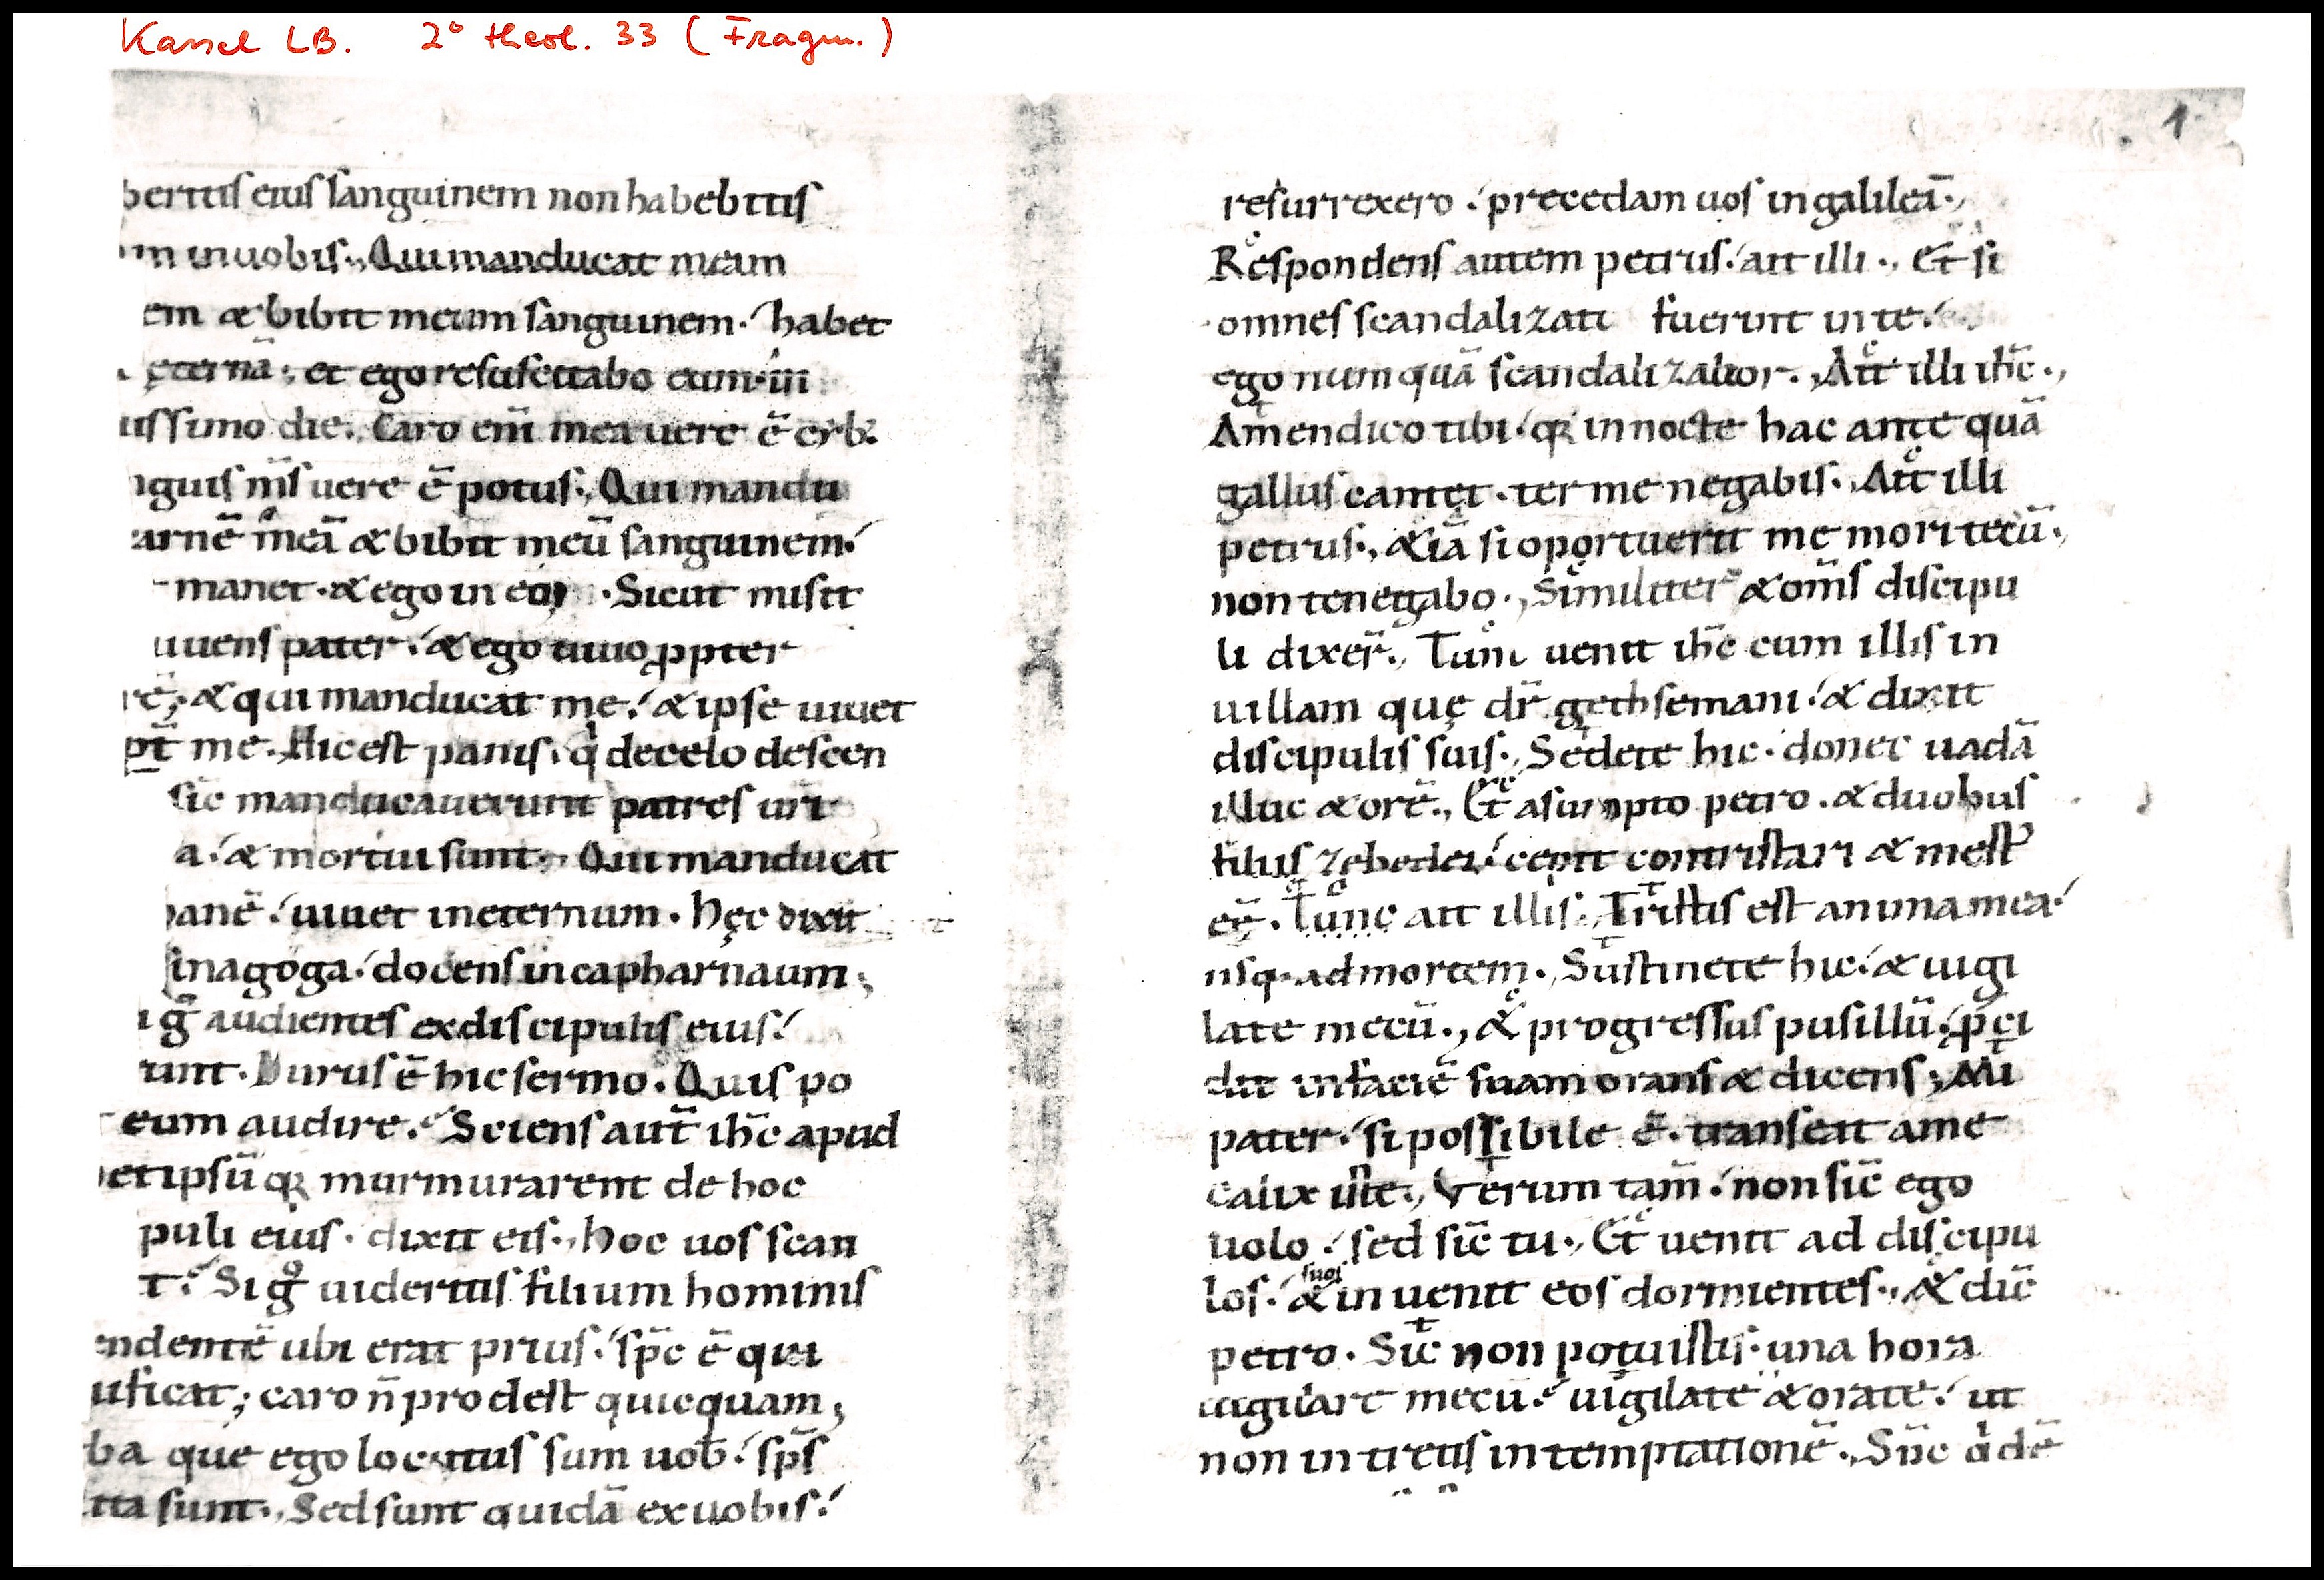 Kassel LB. 2° theol. 33 (Fragm.)
1.
bertis eius sanguinem non habebitis
m in uobis., Qui manducat meam
em & bibit meum sanguinem. habet
ęternā; et ego resuscitabo eum in
issimo die., Caro eni̅ mea uere ē cyb:
nguis ms̄ uere ē potus., Qui mandu
arnē meā & bibit meū sanguinem.
manet. & ego in eo, . Sicut misit
uiuens pater. & ego uiuo ꝓpter
rē, & qui manducat me. & ipse uiuet
pt̄ me. Hic est panis. q̇ de celo descen
sic̄ manducauerunt patres urī
a. & mortui sunt., Qui manducat
panē. uiuet in eternum. hęc dixit
sinagoga. docens in capharnaum;
i g̊ audientes ex discipulis eius.
runt. Durus ē hic sermo. Quis po
eum audire. Sciens aut̄ ihc̄ apud
etipsū qꝛ murmurarent de hoc
puli eius. dixit eis., hoc uos scan
t. Si g̊ uideritis filium hominis
endentē ubi erat prius. spc̄ ē qui
uificat; caro n̄ prodest quicquam,
ba que ego locutus sum uob̄. sps̄
ita sunt., Sed sunt quidā ex uobis.
resurrexero. precedam uos in galileā.,
Respondens autem petrus. ait illi., Et si
omnes scandalizati fuerint in te.
ego numquā scandalizabor., Ait illi ihc̄.,
Amen dico tibi. qꝛ in nocte hac ante quā
gallus cantet. ter me negabis., Ait illi
petrus., &iā si oportuerit me mori tecū.,
non te negabo., Similiter & oms̄ discipu
li dixer̄., Tunc uenit ihc̄ cum illis in
uillam quę dr̄ gethsemani. & dixit
discipulis suis., Sedete hic. donec uadā
illuc & orē., Et asumpto petro. & duobus
filiis zebedei. cepit contristari & mest᾿
eē. Tunc ait illis., Tristis est anima mea
usq. ad mortem., Sustinete hic. & uigi
late mecū., & progressus pusillū. p̄ci
dit in faciē suam orans & dicens; Mi
pater. si possibile ē. transeat a me
calix iste., Verum tam̄. non sic̄ ego
uolo. sed sic̄ tu., Et uenit ad discipu
los. suos & inuenit eos dormientes., & dic̄
petro. Sic̄ non potuistis. una hora
uigilare mecū. uigilate & orate. ut
non intretis in temptationē., Sp̄c q̇dē